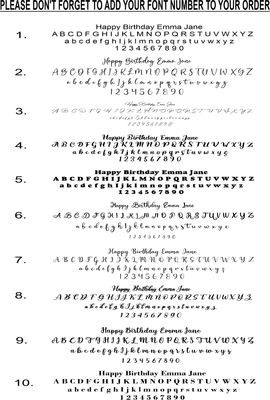 PLEASE DON'T FORGET TO ADD YOUR FONT NUMBER TO YOUR ORDER
Happy Birthday Emma Jane
1. ABCDEFGHIJKLMNOPQRSTUVWXYZ
abcdefghijklmnopqrstuvwxyz
1234567890
Happy Birthday Emma Jane
2. ABCDEFGHIJKLMNOPQRSTUVWXYZ
abcdefghijklmnopqrstuvwxyz
1234567890
Happy Birthday Emma Jane
3. ABCDEFGHIJKLMNOPQRSTUVWXYZ
abcdefghijklmnopqrstuvwxyz
1234567890
Happy Birthday Emma Jane
4. ABCDEFGHIJKLMNOPQRSTUVWXYZ
abcdefghijklmnopqrstuvwxyz
1234567890
Happy Birthday Emma Jane
5. ABCDEFGHIJKLMNOPQRSTUVWXYZ
abcdefghijklmnopqrstuvwxyz
1234567890
Happy Birthday Emma Jane
6. ABCDEFGHIJKLMNOPQRSTUVWXYZ
abcdefghijklmnopqrstuvwxyz
1234567890
Happy Birthday Emma Jane
7. ABCDEFGHIJKLMNOPQRSTUVWXYZ
abcdefghijklmnopqrstuvwxyz
1234567890
Happy Birthday Emma Jane
8. ABCDEFGHIJKLMNOPQRSTUVWXYZ
abcdefghijklmnopqrstuvwxyz
1234567890
Happy Birthday Emma Jane
9. ABCDEFGHIJKLMNOPQRSTUVWXYZ
abcdefghijklmnopqrstuvwxyz
1234567890
Happy Birthday Emma Jane
10. ABCDEFGHIJKLMNOPQRSTUVWXYZ
abcdefghijklmnopqrstuvwxyz
1234567890